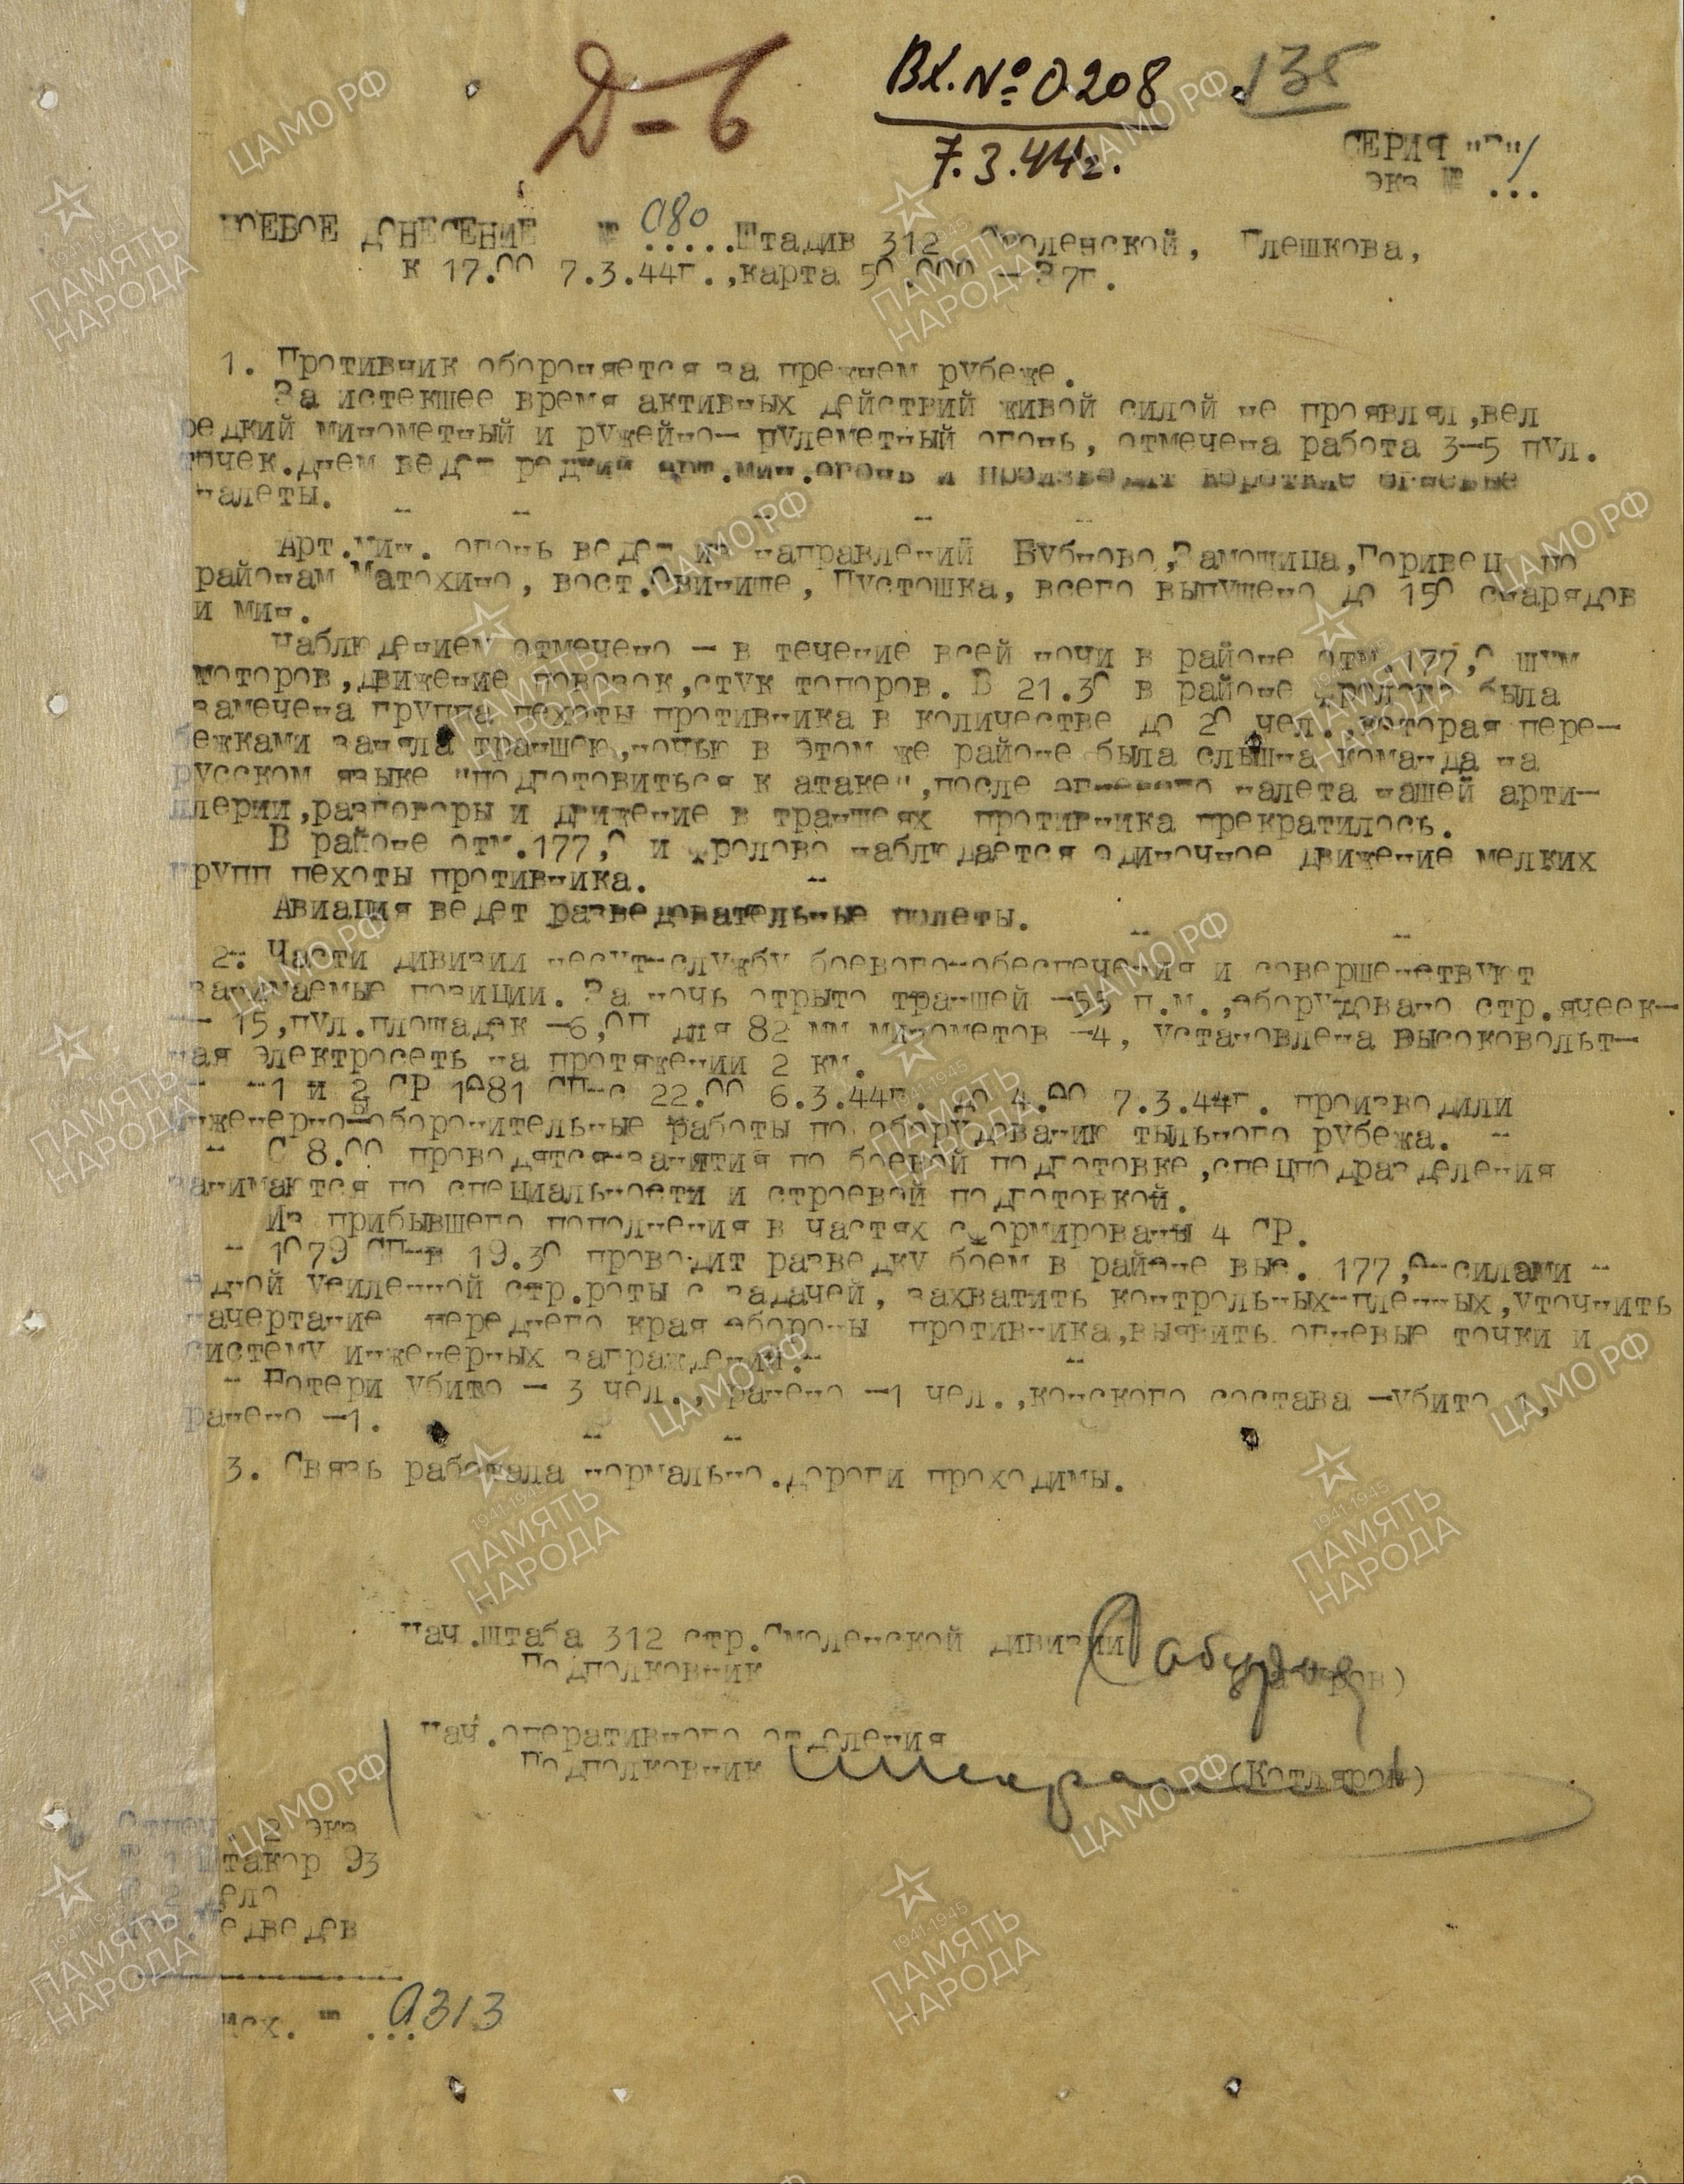 Д-6
Вх. № 0208
135
7.3.44г.
СЕРИЯ "Г"
экз № ...
БОЕВОЕ ДОНЕСЕНИЕ № 080 Штадив 312 Смоленской, Плешкова,
к 17.00 7.3.44г.,карта 50.000 - 37г.
1. Противник обороняется на прежнем рубеже.
За истекшее время активных действий живой силой не проявлял,вел
редкий минометный и ружейно- пулеметный огонь, отмечена работа 3-5 пул.
точек.Днем ведет редкий арт.мин.огонь и производит короткие огневые
налеты.
Арт.мин. огонь ведет из направлений Бубново,Замощица,Горивец по
районам Матохино, вост.Свинище, Пустошка, всего выпущено до 150 снарядов
и мин.
Наблюдением отмечено - в течение всей ночи в районе отм.177,0 шум
моторов,движение повозок,стук топоров. В 21.30 в районе Фролово была
замечена группа пехоты противника в количестве до 20 чел.,которая пере-
бежками заняла траншею,ночью в этом же районе была слышна команда на
русском языке "подготовиться к атаке",после огневого налета нашей арти-
ллерии,разговоры и движение в траншеях противника прекратилось.
В районе отм.177,0 и Фролово наблюдается одиночное движение мелких
групп пехоты противника.
Авиация ведет разведовательные полеты.
2. Части дивизии несут службу боевого обеспечения и совершенствуют
занимаемые позиции. За ночь отрыто траншей -55 п.м.,оборудовано стр.ячеек-
- 15,пул.площадек -6,ОП для 82 мм минометов -4, установлена высоковольт-
ная электросеть на протяжении 2 км.
- 1 и 2 СР 1081 СП с 22.00 6.3.44г. до 4.00 7.3.44г. производили
инженерно-оборонительные работы по оборудованию тыльного рубежа.
- С 8.00 проводятся занятия по боевой подготовке,спецподразделения
занимаются по специальности и строевой подготовкой.
Из прибывшего пополнения в частях сформированы 4 СР.
- 1079 СП в 19.30 проводит разведку боем в районе выс. 177,0 силами
одной усиленной стр.роты с задачей, захватить контрольных пленных,уточнить
начертание переднего края обороны противника,выявить огневые точки и
систему инженерных заграждений.-
- Потери убито - 3 чел., ранено -1 чел.,конского состава -убито 1,
ранено -1.
3. Связь работала нормально.Дороги проходимы.
Нач.штаба 312 стр.Смоленской дивизии
Подполковник
Нач.оперативного отделения
Подполковник (Котляров)
Отпеч. 2 экз
№ 1 Штакор 93
№ 2 дело
Медведев
исх. № 0313
ЦА МО РФ
ПАМЯТЬ НАРОДА
1941-1945